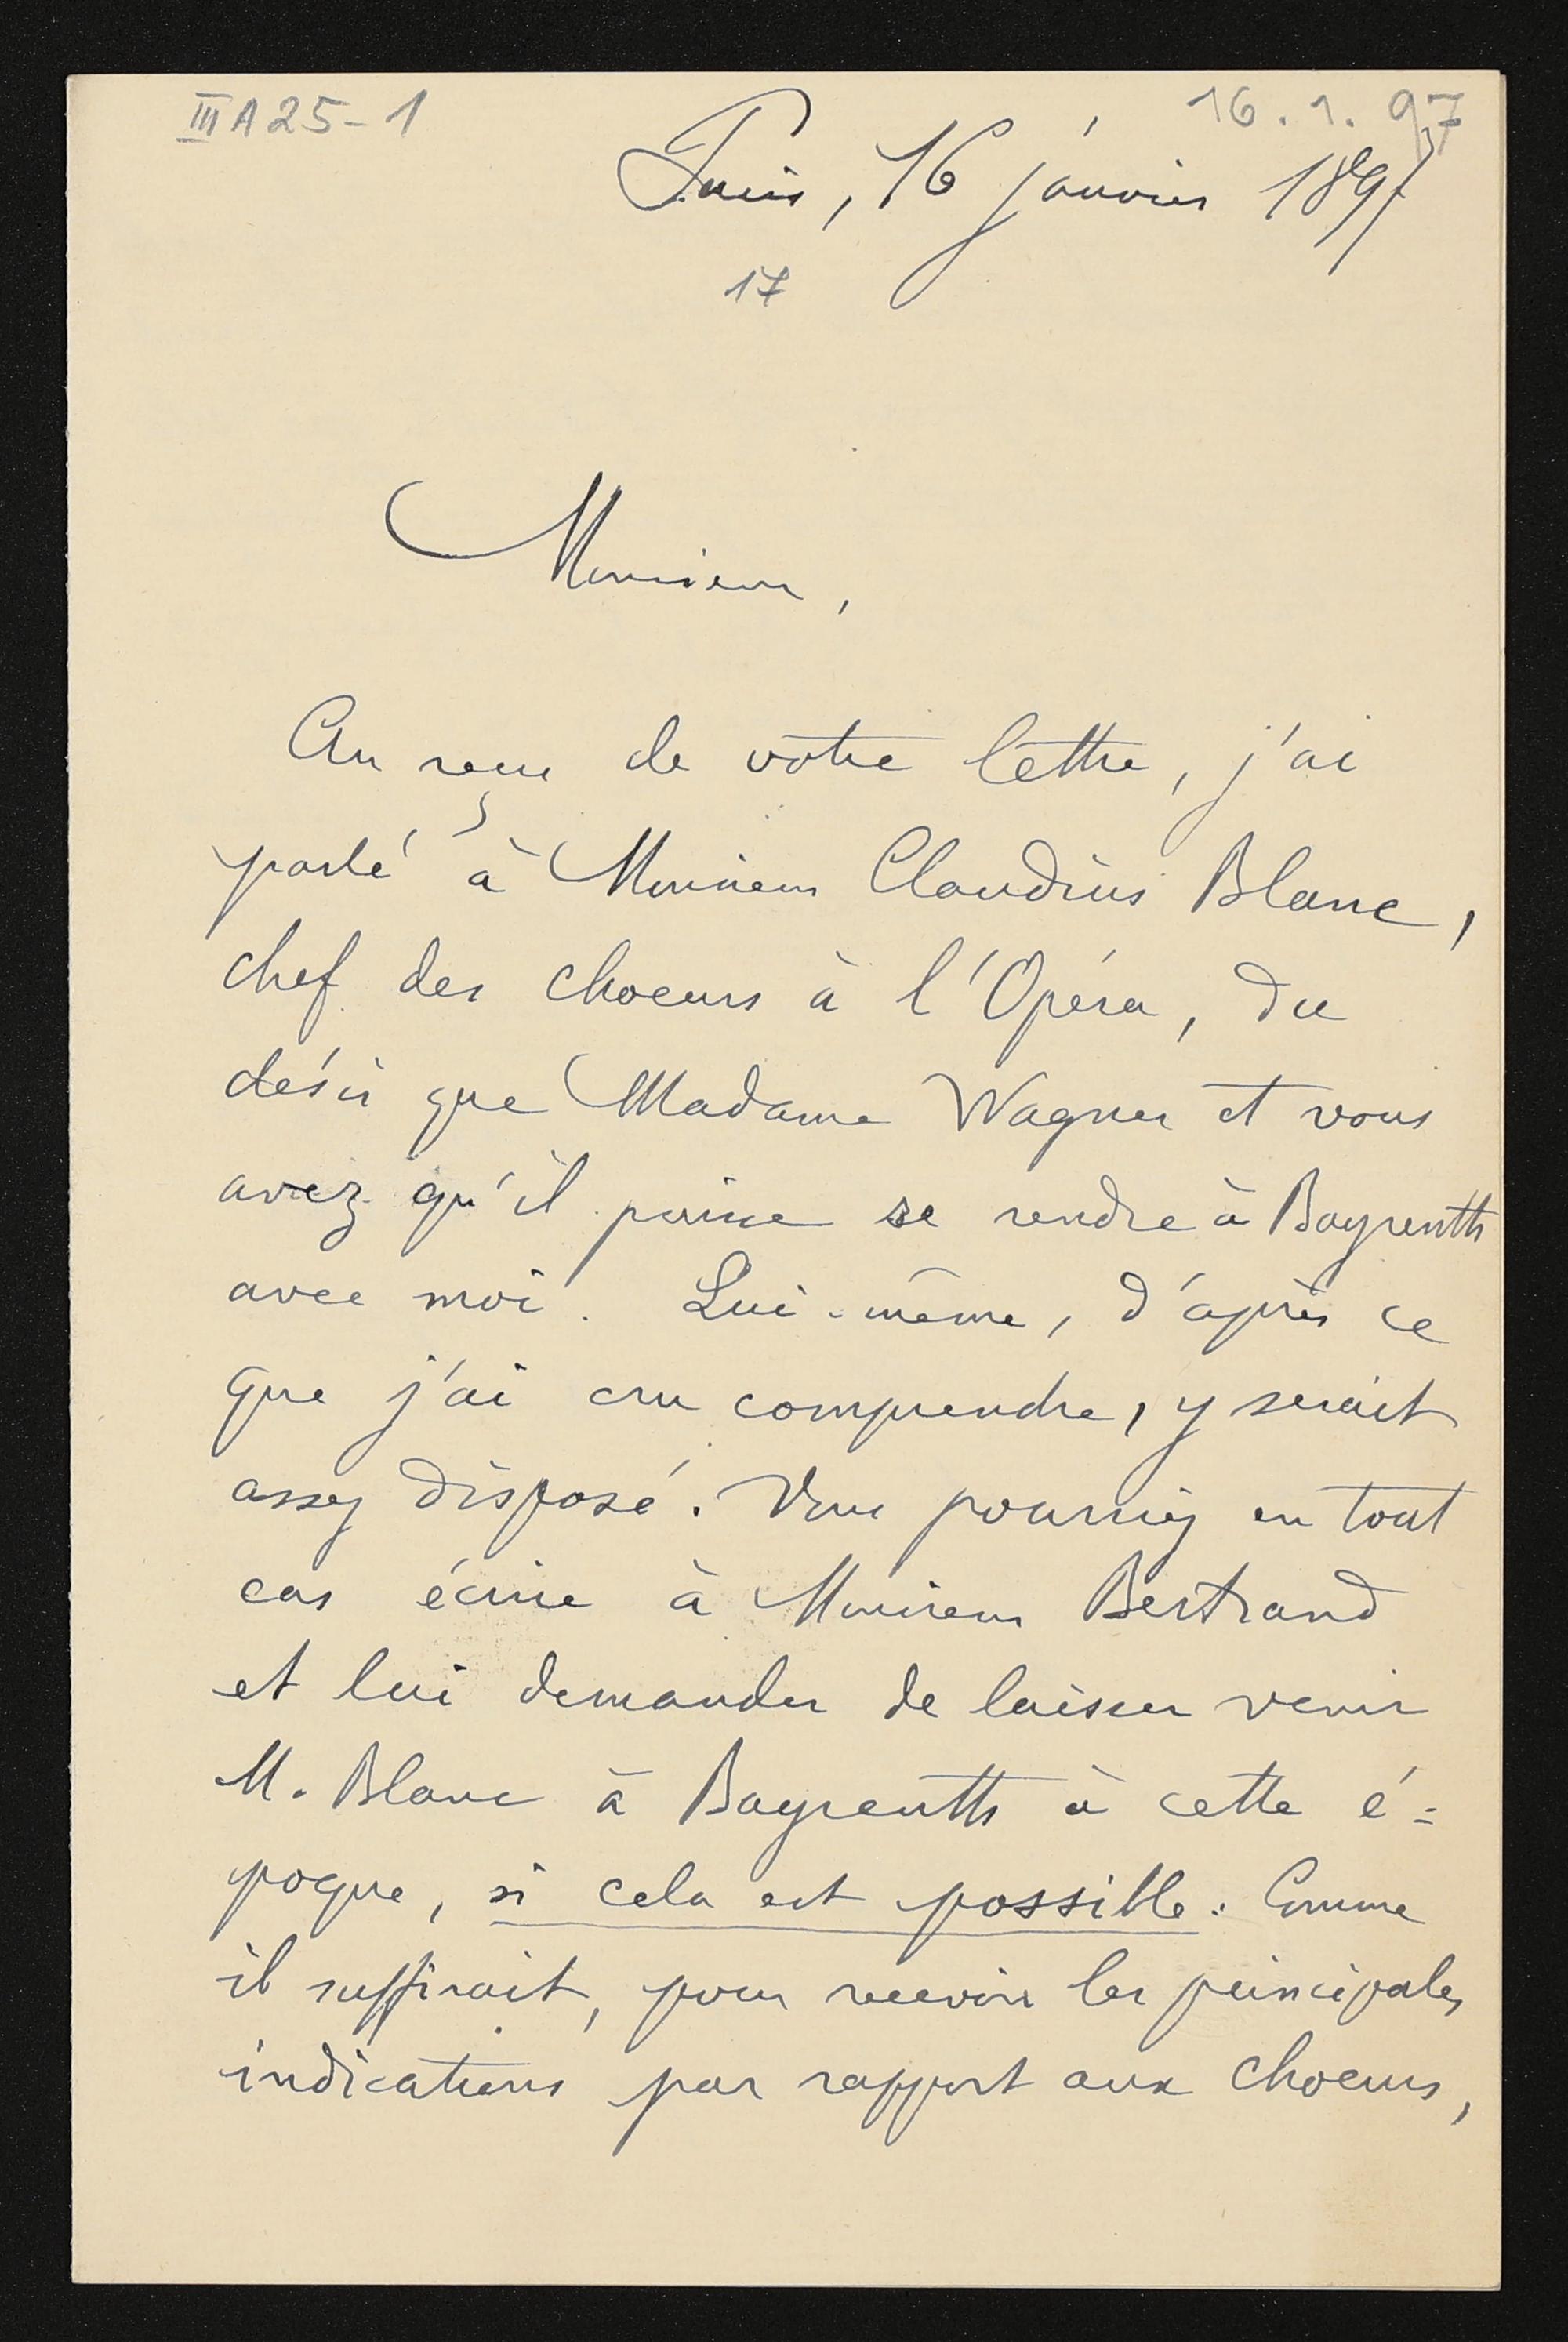 III A 25-1
16.1.97
Paris, 16 janvier 1897
17
Monsieur,
Au reçu de votre lettre, j'ai
parlé à Monsieur Claudius Blanc,
chef des choeurs à l'Opéra, du
désir que Madame Wagner et vous
avez qu'il puisse se rendre à Bayreuth
avec moi. Lui-même, d'après ce
que j'ai cru comprendre, y serait
assez disposé. Vous pourriez en tout
cas écrire à Monsieur Bertrand
et lui demander de laisser venir
M. Blanc à Bayreuth à cette é=
poque, si cela est possible. Comme
il suffirait, pour recevoir les principales
indications par rapport aux choeurs,